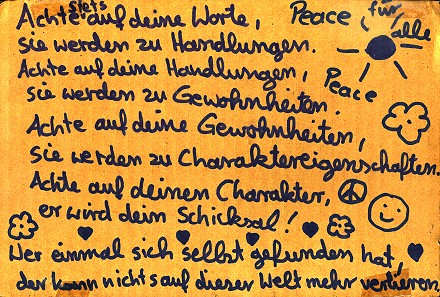 Achte stets auf deine Worte,
Peace für alle
sie werden zu Handlungen.
Achte auf deine Handlungen,
Peace
sie werden zu Gewohnheiten.
Achte auf deine Gewohnheiten,
sie werden zu Charaktereigenschaften.
Achte auf deinen Charakter,
er wird dein Schicksal!
Wer einmal sich selbst gefunden hat,
der kann nichts auf dieser Welt mehr verlieren.